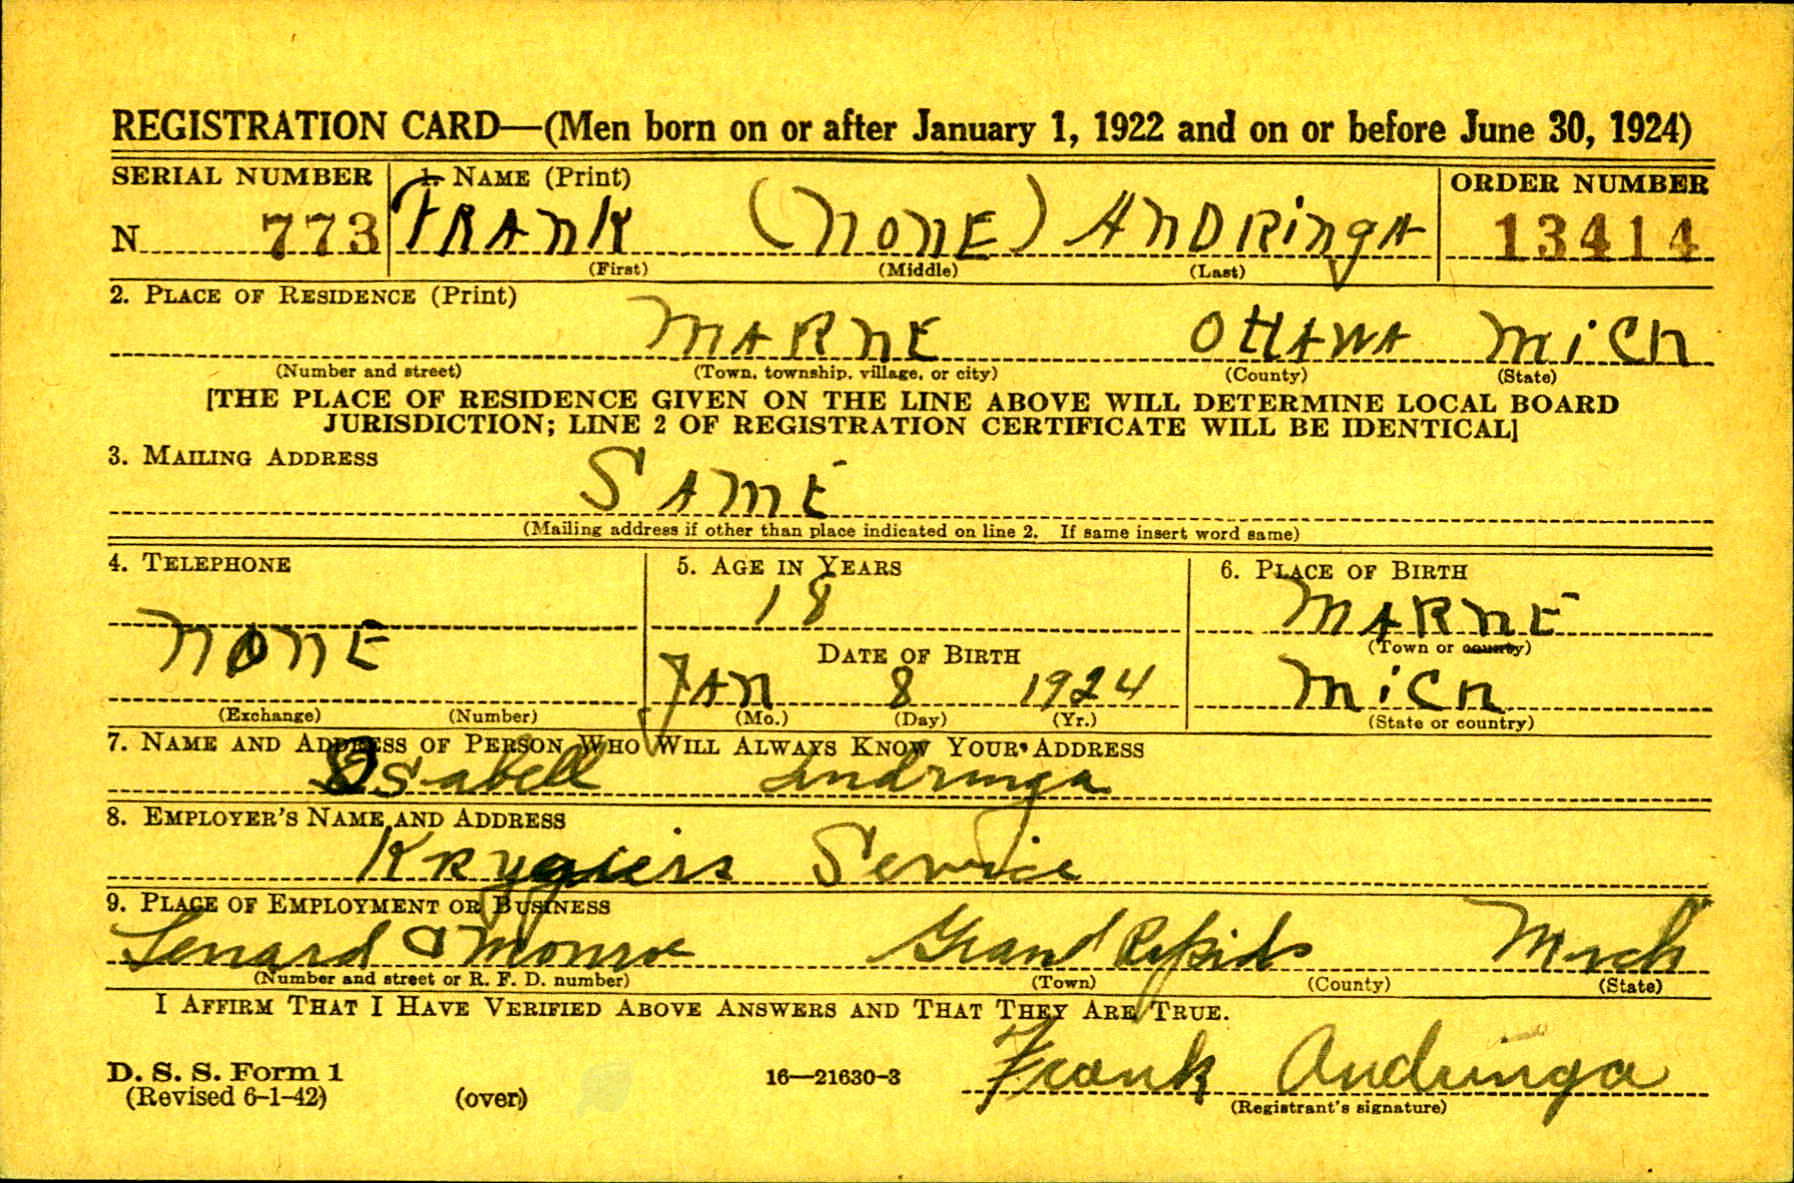 REGISTRATION CARD—(Men born on or after January 1, 1922 and on or before June 30, 1924)
SERIAL NUMBER 1. NAME (Print) ORDER NUMBER
N 773 FRANK (NONE) ANDRINGA 13414
(First) (Middle) (Last)
2. PLACE OF RESIDENCE (Print)
MARNE OTTAWA MICH
(Number and street) (Town, township, village, or city) (County) (State)
[THE PLACE OF RESIDENCE GIVEN ON THE LINE ABOVE WILL DETERMINE LOCAL BOARD
JURISDICTION; LINE 2 OF REGISTRATION CERTIFICATE WILL BE IDENTICAL]
3. MAILING ADDRESS
SAME
(Mailing address if other than place indicated on line 2. If same insert word same)
4. TELEPHONE 5. AGE IN YEARS 6. PLACE OF BIRTH
18 MARNE
NONE DATE OF BIRTH (Town or county)
JAN 8 1924 MICH
(Exchange) (Number) (Mo.) (Day) (Yr.) (State or country)
7. NAME AND ADDRESS OF PERSON WHO WILL ALWAYS KNOW YOUR ADDRESS
Isabell Andringa
8. EMPLOYER'S NAME AND ADDRESS
Krygiers Service
9. PLACE OF EMPLOYMENT OR BUSINESS
Lenard & Monroe Grand Rapids Mich
(Number and street or R. F. D. number) (Town) (County) (State)
I AFFIRM THAT I HAVE VERIFIED ABOVE ANSWERS AND THAT THEY ARE TRUE.
D. S. S. Form 1 16—21630-3 Frank Andringa
(Revised 6-1-42) (over) (Registrant's signature)